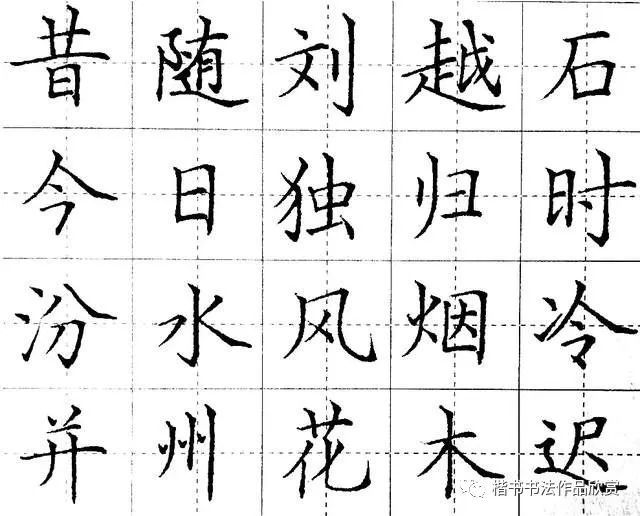 昔随刘越石
今日独归时
汾水风烟冷
并州花木迟
楷书书法作品欣赏